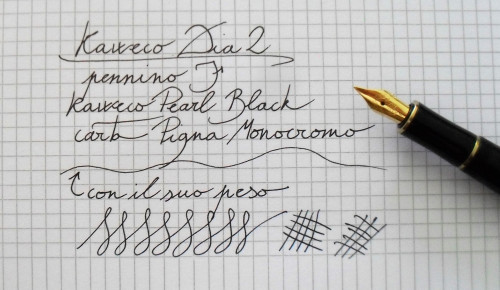 Kaweco Dia 2
pennino F
Kaweco Pearl Black
carta Pigna Monocromo
con il suo peso